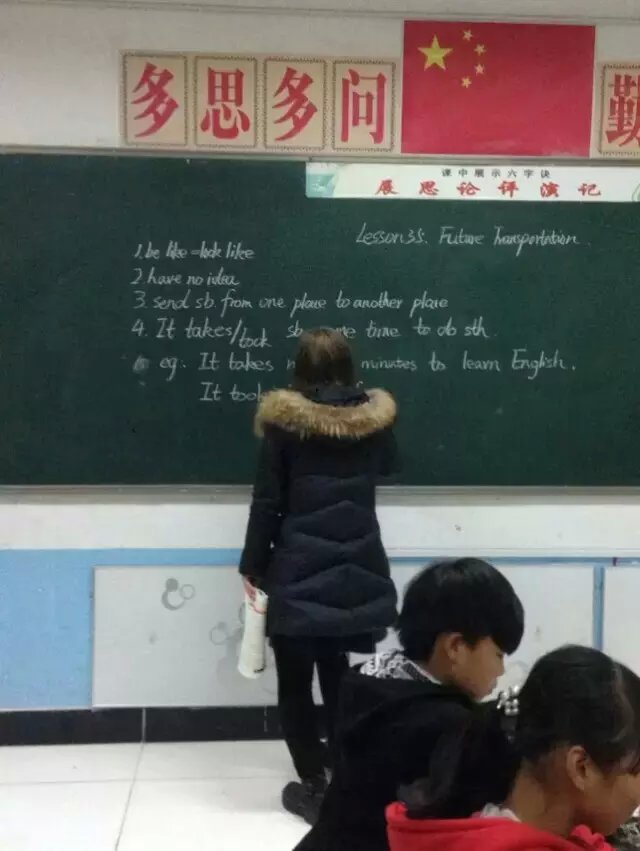 多思多问 勤
课中展示六字诀
展思论评演记
Lesson 35. Future Transportation.
1. be like = look like
2. have no idea
3. send sb. from one place to another place
4. It takes/took sb time to do sth.
eg. It takes minutes to learn English.
It took